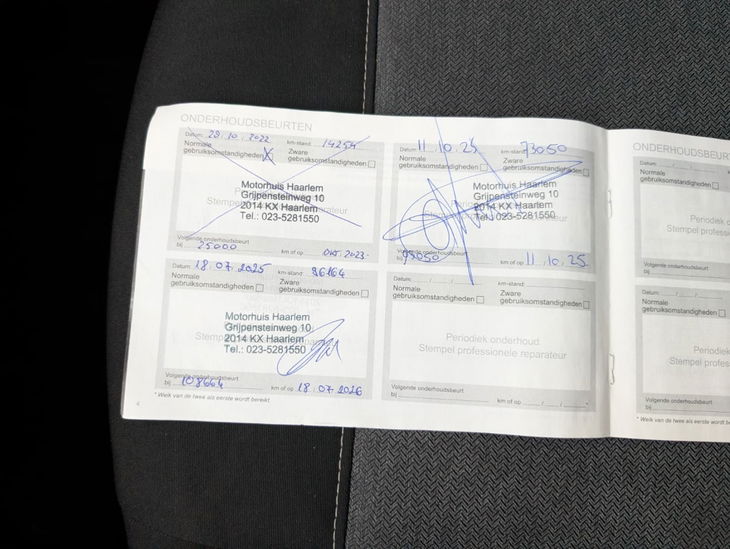 ONDERHOUDSBEURTEN
Datum: 28.10.2022 km-stand: 14254
Normale gebruiksomstandigheden X Zware gebruiksomstandigheden
Motorhuis Haarlem
Grijpensteinweg 10
2014 KX Haarlem
Tel.: 023-5281550
Volgende onderhoudsbeurt
bij 25000 km of op Okt. 2023.
Datum: 11.10.25 km-stand: 73050
Normale gebruiksomstandigheden Zware gebruiksomstandigheden
Motorhuis Haarlem
Grijpensteinweg 10
2014 KX Haarlem
Tel.: 023-5281550
km of op 11.10.25
Datum: 18.07.2025 km-stand: 86464
Normale gebruiksomstandigheden Zware gebruiksomstandigheden
Motorhuis Haarlem
Grijpensteinweg 10
2014 KX Haarlem
Tel.: 023-5281550
Volgende onderhoudsbeurt
bij 108664 km of op 18.07.2026
Datum: km-stand:
Normale gebruiksomstandigheden Zware gebruiksomstandigheden
Periodiek onderhoud
Stempel professionele reparateur
Volgende onderhoudsbeurt
bij km of op *
* Welk van de twee als eerste wordt bereikt
ONDERHOUDSBEUR
Datum:
Normale
gebruiksomstandigheden
Periodiek o
Stempel profess
Volgende onderhoudsbeurt
bij
Datum:
Normale
gebruiksomstandigheden
Periodiek
Stempel profess
Volgende onderhoudsbeurt
bij
* Welk van de twee als eerste wordt b